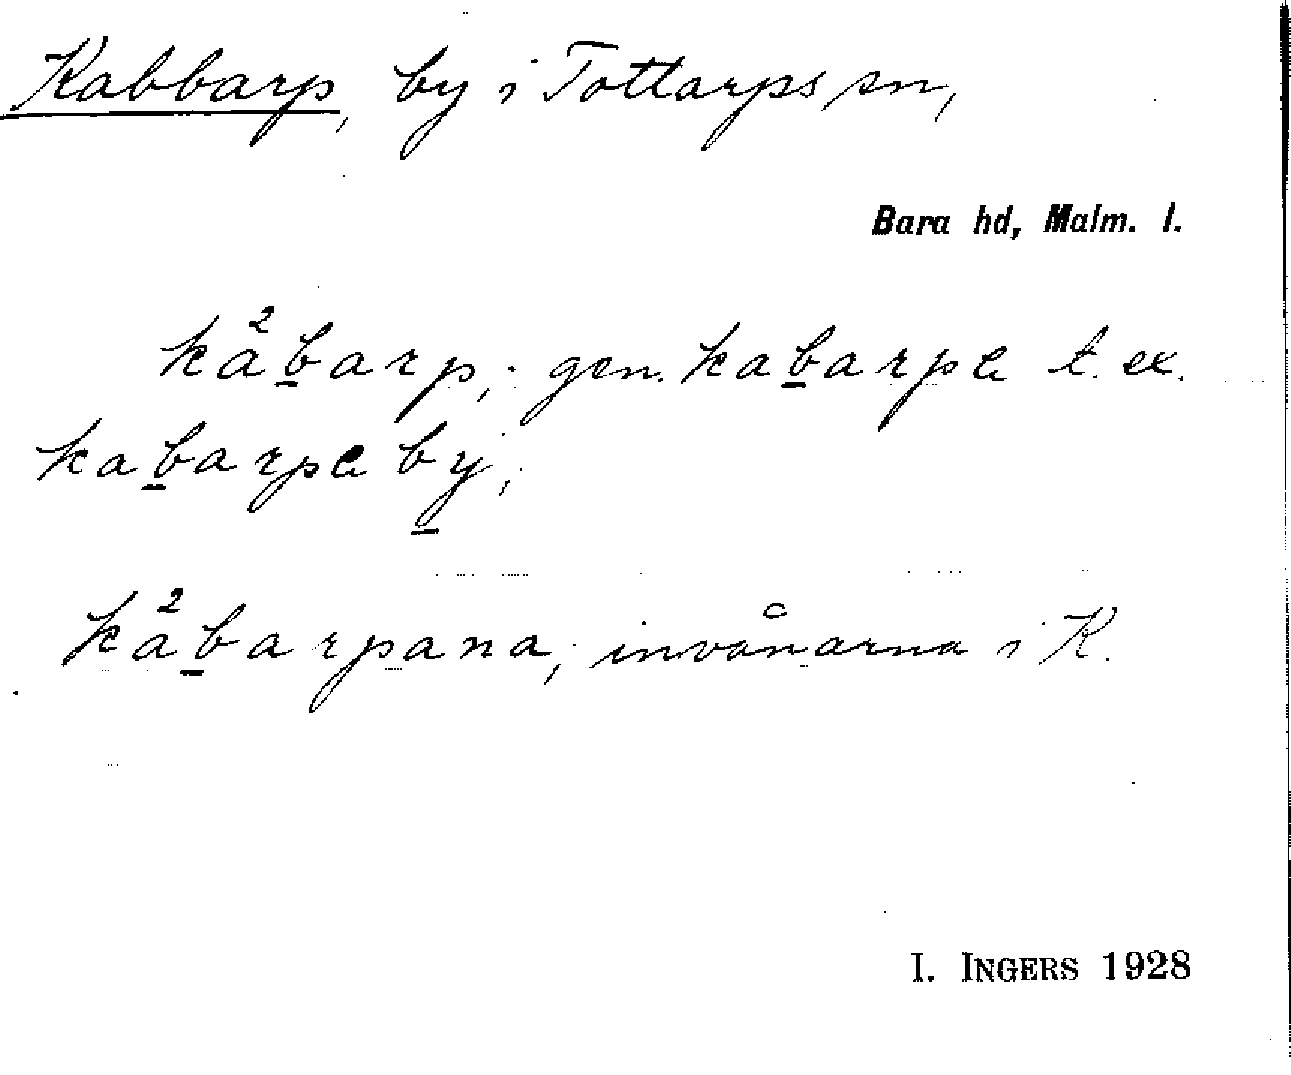 Kabbarp, by i Tottarps sn,
Bara hd, Malm. l.
ka²b̲arp; gen. kab̲arpa t. ex.
kab̲arpa by̲;
ka²b̲arpana, invånarna i K.
I. INGERS 1928